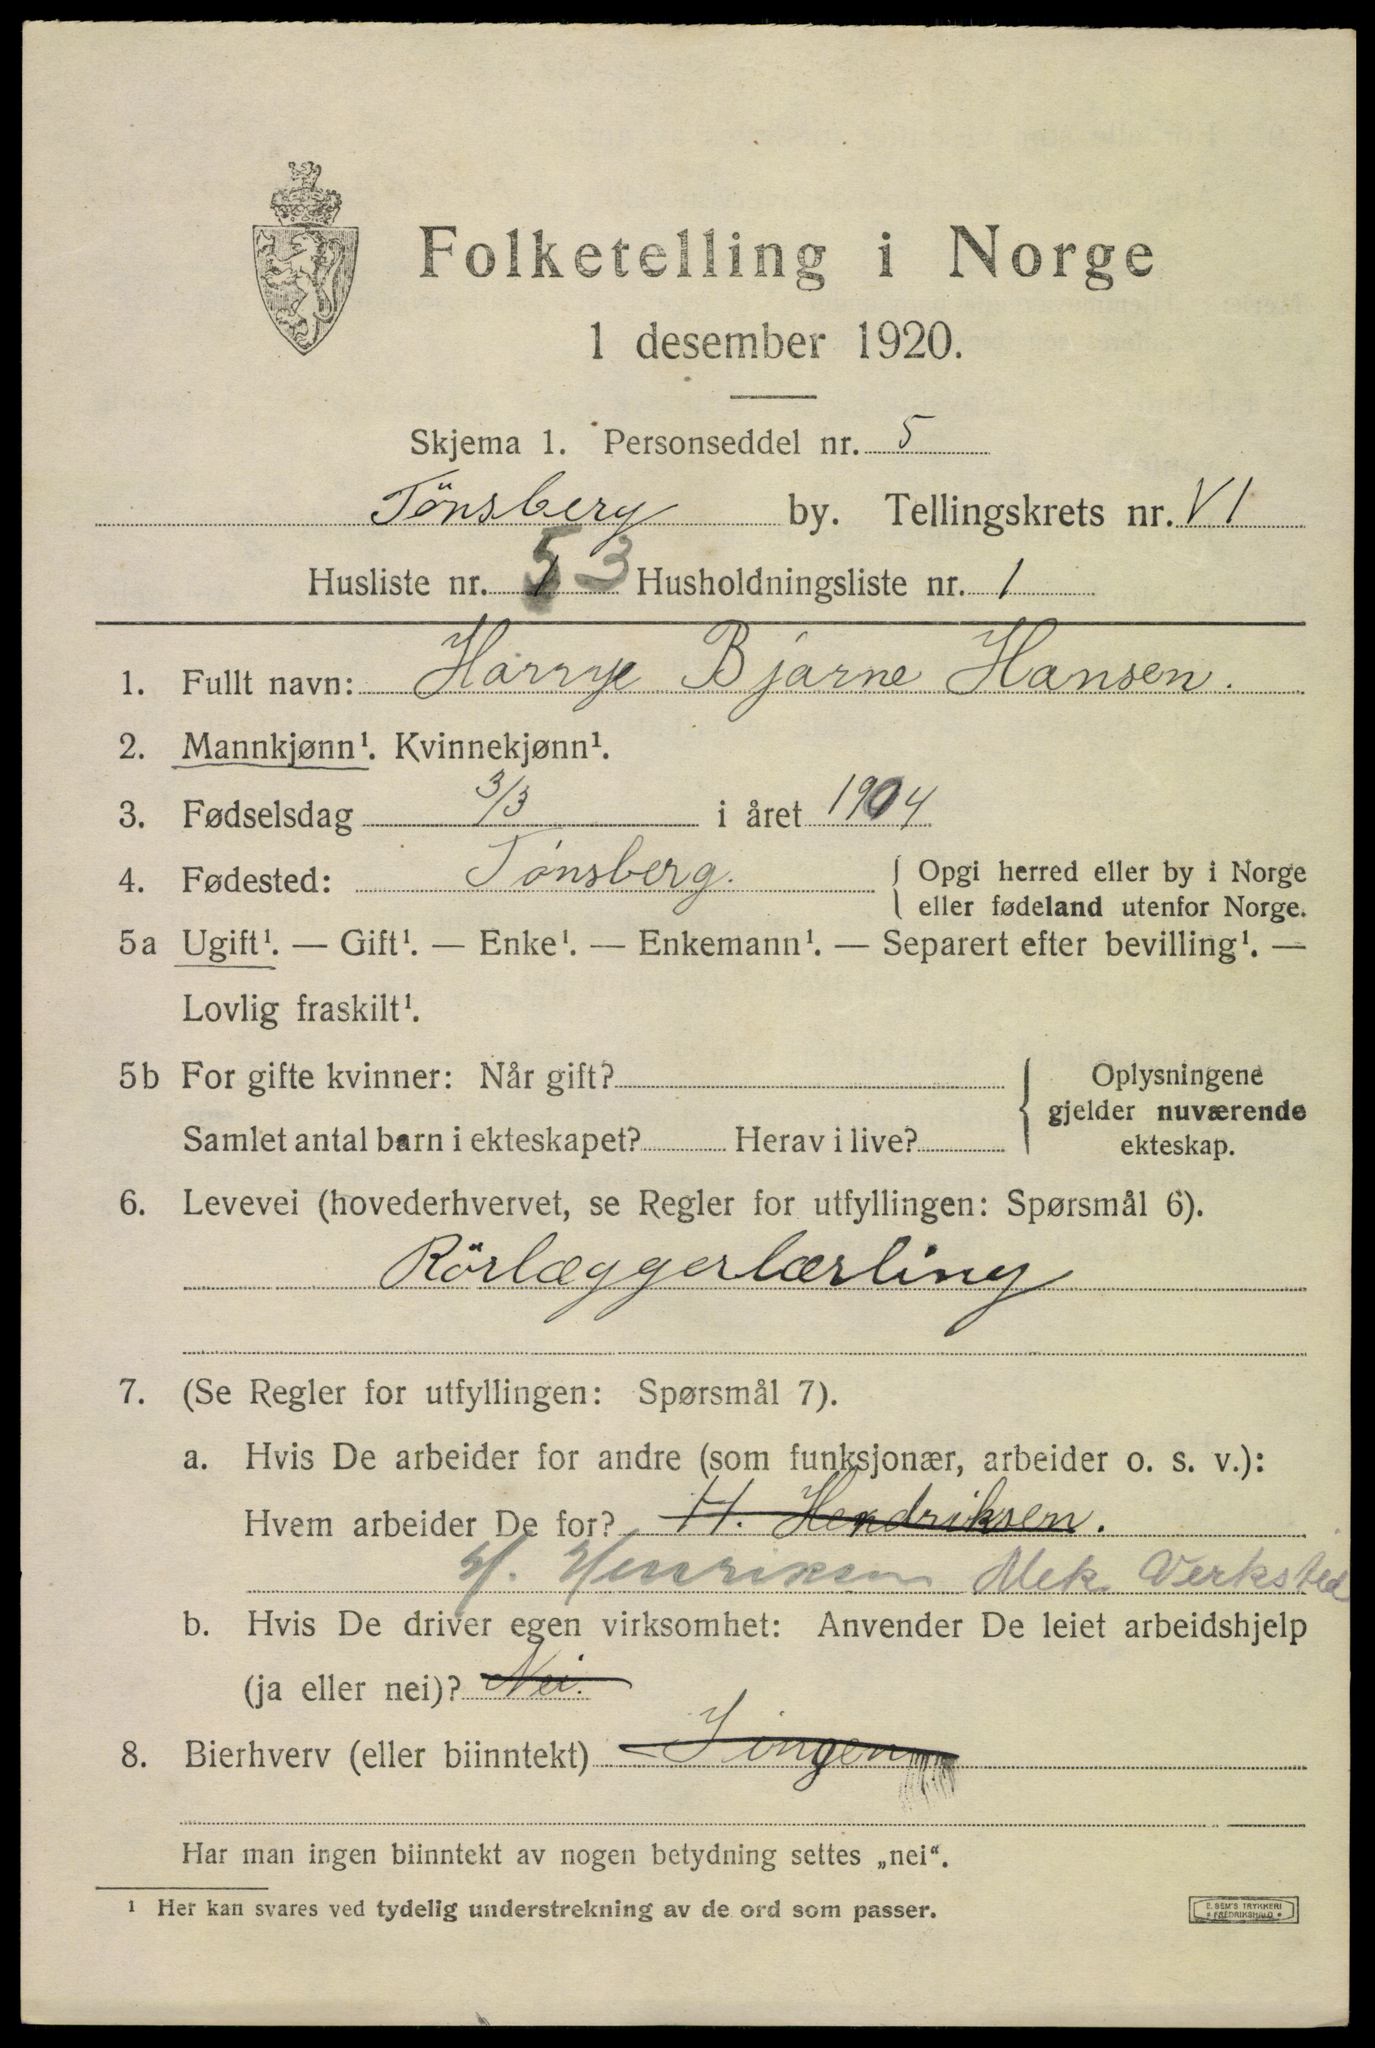 Folketelling i Norge
1 desember 1920.
Skjema 1. Personseddel nr. 5
Tönsberg by. Tellingskrets nr. VI
Husliste nr. 53 Husholdningsliste nr. 1
1. Fullt navn: Harrye Bjarne Hansen.
2. Mannkjønn¹. Kvinnekjønn¹.
3. Fødselsdag 3/3 i året 1904
4. Fødested: Tønsberg. { Opgi herred eller by i Norge
eller fødeland utenfor Norge.
5a Ugift¹. — Gift¹. — Enke¹. — Enkemann¹. — Separert efter bevilling¹. —
Lovlig fraskilt¹.
5b For gifte kvinner: Når gift? { Oplysningene
gjelder nuværende
Samlet antal barn i ekteskapet? Herav i live? ekteskap.
6. Levevei (hovederhvervet, se Regler for utfyllingen: Spørsmål 6).
Rörlæggerlærling
7. (Se Regler for utfyllingen: Spørsmål 7).
a. Hvis De arbeider for andre (som funksjonær, arbeider o. s. v.):
Hvem arbeider De for? H. Hendriksen.
H. Henriksen Mek Verksted
b. Hvis De driver egen virksomhet: Anvender De leiet arbeidshjelp
(ja eller nei)? Nei.
8. Bierhverv (eller biinntekt) Iingen
Har man ingen biinntekt av nogen betydning settes „nei“.
¹ Her kan svares ved tydelig understrekning av de ord som passer.
E. SEM'S TRYKKERI
* FREDRIKSHALD *